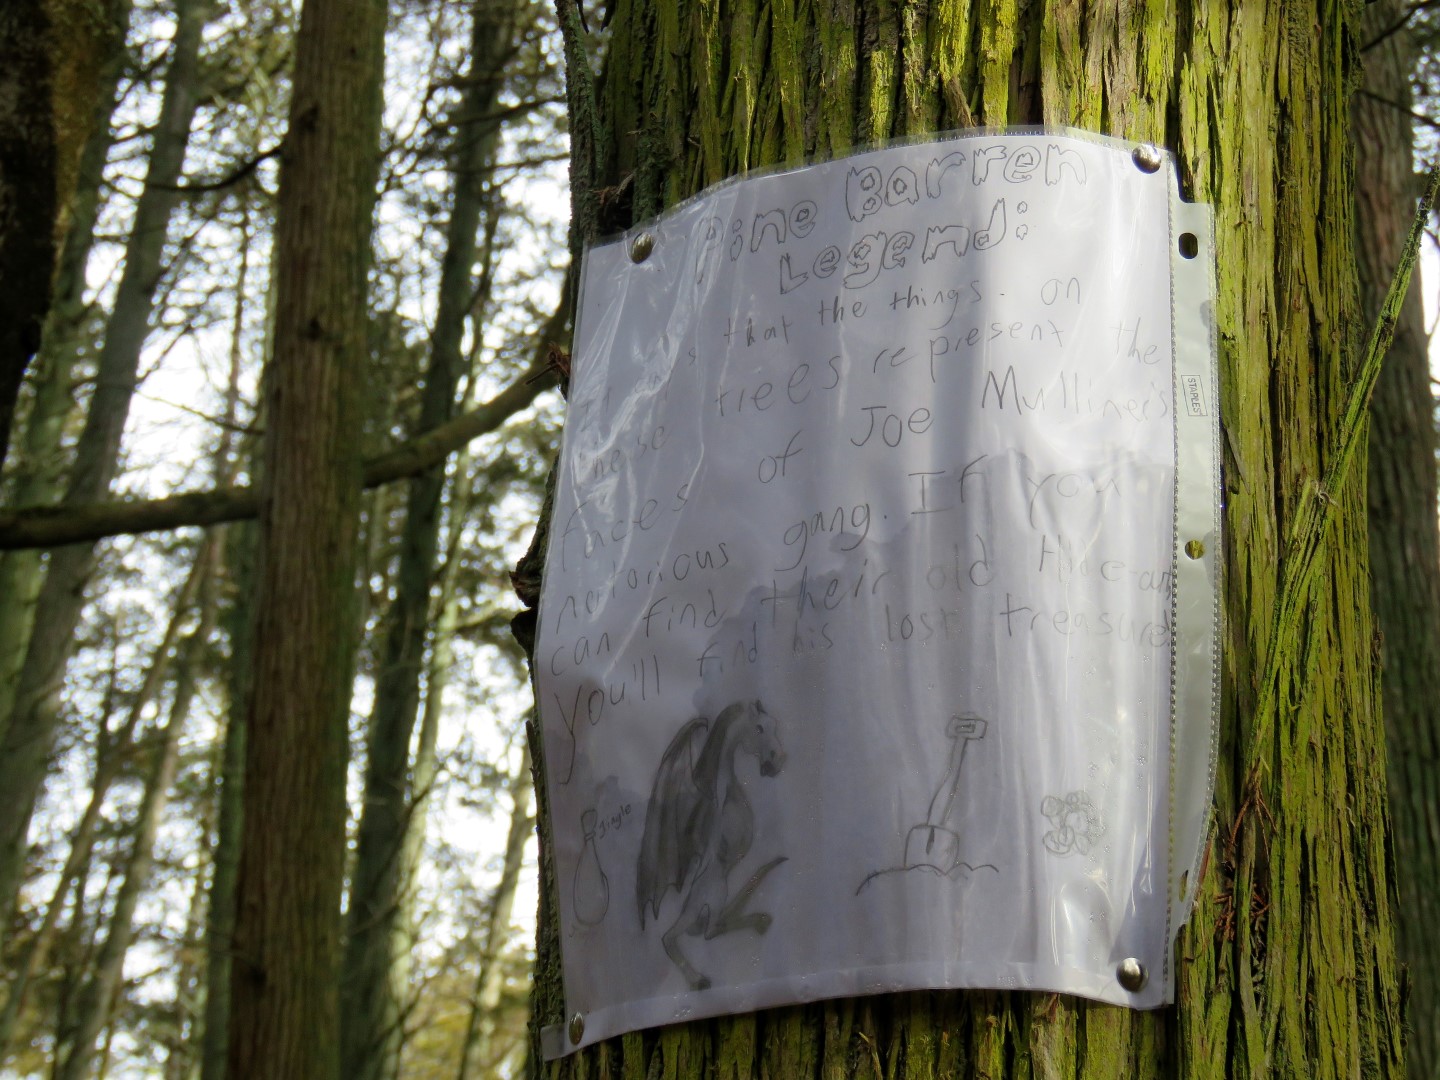 Pine Barren
Legend:
It is that the things on
these trees represent the
faces of Joe Mulliner's
notorious gang. If you
can find their old
you'll find his lost treasure!
Jingle
STAPLES